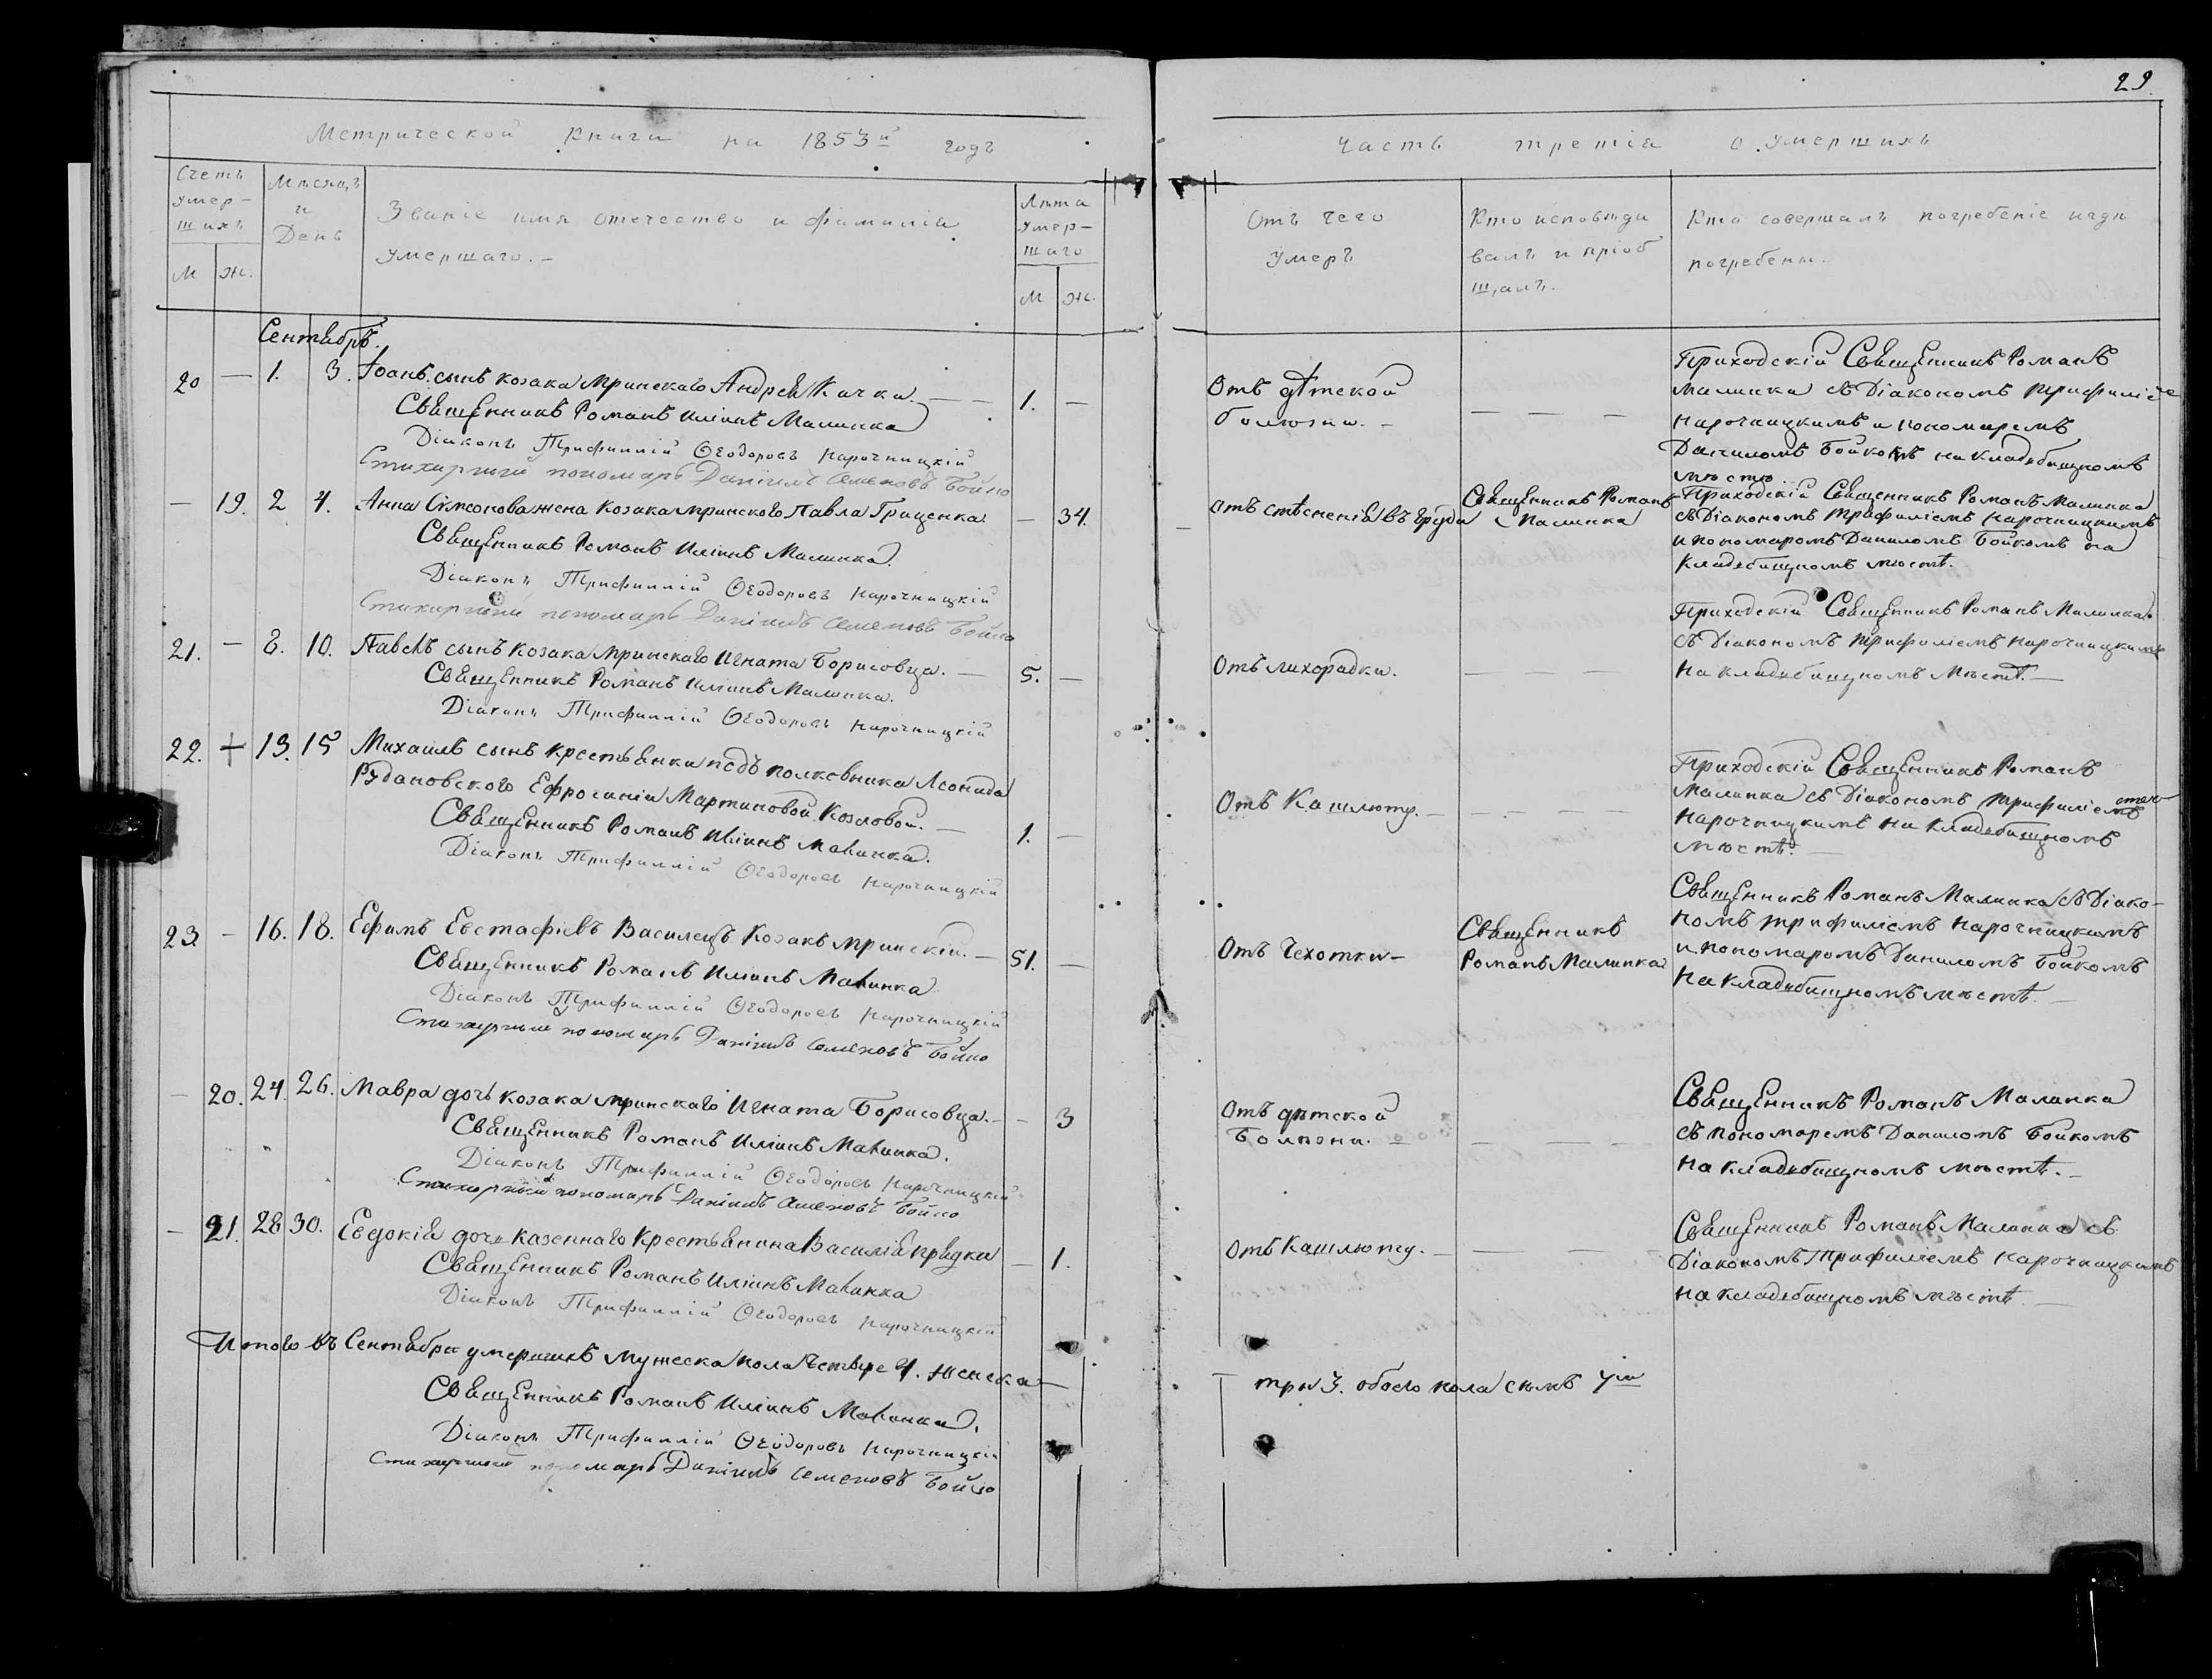 29.
Метрической Книги на 1853й годъ
Часть третіа о умершихъ
Счетъ умер-шихъ
М
Ж.
Мѣсяцъ и День
Званіе имя отечество и фамилія
умершаго. -
Лѣта умер-шаго
М
Ж.
Отъ чего
умеръ
Кто исповѣды
валъ и пріоб
щалъ.
Кто совершалъ погребеніе игдѣ
погребены.
Сентябрѣ.
20 — 1. 3. Іоанъ сынъ козака Мринскаго Андрея Качки. — — 1. —
Священникъ Романъ Иліинъ Малинка
Діаконъ Трифиллій Ѳеодоровъ Нарочницкій
Стихарный пономарь Даніилъ Семеновъ Бойко
Отъ дѣтской
болѣзни. -
— — —
Приходскій Священникъ Романъ
Малинка съ Діакономъ Трифиліе
Нарочницкимъ и пономаремъ
Даниломъ Бойкомъ на Кладбищномъ
мѣстѣ
— 19. 2 4. Анна Симеонова жена Козака мринского Павла Гращенка — 34.
Священникъ Романъ Иліинъ Малинка.
Діаконъ Трифиллій Ѳеодоровъ Нарочницкій
Стихарный пономарь Даніилъ Семеновъ Бойко
отъ стѣсненія въ груди
Священникъ Романъ
Малинка
Приходскій Священникъ Романъ Малинка
съ Діакономъ Трифиліемъ Нарочницкимъ
и пономаромъ Даниломъ Бойкомъ на
Кладбищномъ мѣстѣ.
21. — 8. 10. Павелъ сынъ козака Мринскаго Игната Борисовца. — 5. —
Священникъ Романъ Иліинъ Малинка.
Діаконъ Трифиллій Ѳеодоровъ Нарочницкій
Отъ лихорадки.
— — —
Приходскій Священникъ Романъ Малинка
съ Діакономъ Трифиліемъ Нарочницкимъ
на кладбищномъ Мѣстѣ. —
22. + 13. 15 Михаилъ сынъ крестьянки подъ полковника Леонида
Рудановского Ефросиніи Мартиновой Козловой. — 1. —
Священникъ Романъ Иліинъ Малинка.
Діаконъ Трифиллій Ѳеодоровъ Нарочницкій
Отъ Кашлюту. —
— — —
Приходскій Священникъ Романъ
Малинка съ Діакономъ Трифиліемъ
Нарочницкимъ на Кладбищномъ
мѣстѣ. —
23. — 16. 18. Ефимъ Евстафіевъ Василецъ Козакъ мринскій. — 51. —
Священникъ Романъ Иліинъ Малинка
Діаконъ Трифиллій Ѳеодоровъ Нарочницкій
Стихарный пономарь Даніилъ Семеновъ Бойко
Отъ Чехотки —
Священникъ
Романъ Малинка
Священникъ Романъ Малинка съ Діако-
номъ Трифиліемъ Нарочницкимъ
и пономаромъ Даниломъ Бойкомъ
на Кладбищномъ мѣстѣ. —
— 20. 24. 26. Мавра дочь козака мринскаго Игната Борисовца. — — 3
Священникъ Романъ Иліинъ Малинка.
Діаконъ Трифиллій Ѳеодоровъ Нарочницкій
Стихарный пономарь Даніилъ Семеновъ Бойко
Отъ дѣтской
Болѣзни. —
— — —
Священникъ Романъ Малинка
съ пономаремъ Даниломъ Бойкомъ
на кладбищномъ мѣстѣ. —
— 21. 28 30. Евдокія дочь казеннаго Крестьянина Василія Прядки — 1.
Священникъ Романъ Иліинъ Малинка
Діаконъ Трифиллій Ѳеодоровъ Нарочницкій
Отъ Кашлюту. —
— —
Священникъ Романъ Малинка съ
Діакономъ Трифиліемъ Нарочницкимъ
на кладбищномъ мѣстѣ. —
Итого въ Сентябрѣ умершихъ мужеска пола четыре 4. женска —
три 3. обоего пола семь 7м
Священникъ Романъ Иліинъ Малинка.
Діаконъ Трифиллій Ѳеодоровъ Нарочницкій
Стихарный пономарь Даніилъ Семеновъ Бойко